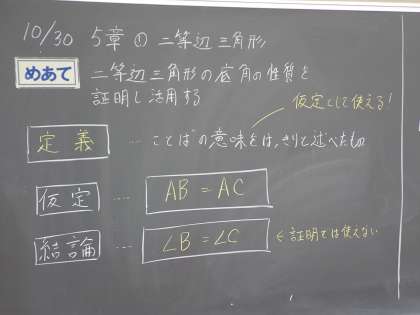 10/30 5章 ① 二等辺三角形
めあて 二等辺三角形の底角の性質を
証明し活用する
仮定として使える!
定義 … ことばの意味をはっきりと述べたもの
仮定 … AB = AC
結論 … ∠B = ∠C ← 証明では使えない